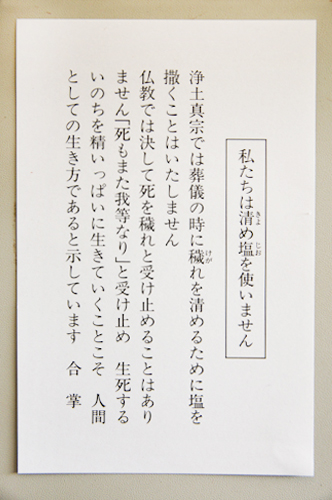 私たちは清め塩を使いません
浄土真宗では葬儀の時に穢れを清めるために塩を
撒くことはいたしません
仏教では決して死を穢れと受け止めることはあり
ません「死もまた我等なり」と受け止め　生死する
いのちを精いっぱいに生きていくことこそ　人間
としての生き方であると示しています　合　掌